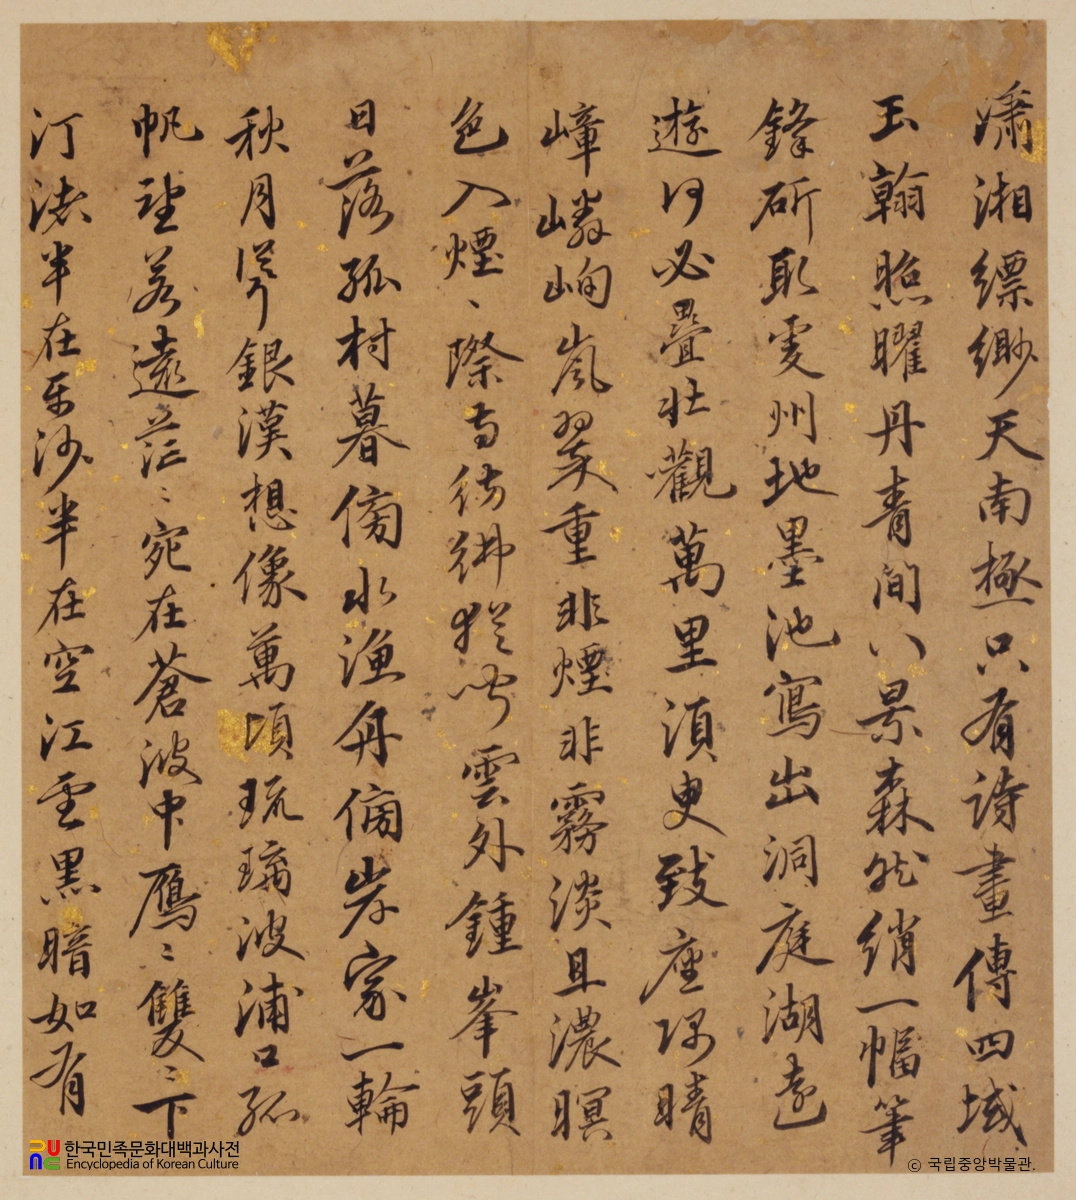 瀟湘縹緲天南極只有詩畫傳四域
玉翰照曜丹青間八景森然綃一幅筆
鋒斫取州地墨池寫出洞庭湖遠
遊何必疊壯觀萬里須臾致座隅晴
嶂嶙峋嵐翠重非煙非霧淡且濃暝
色入煙〻際寺彷彿猶聞雲外鍾峯頭
日落孤村暮傍水漁舟傍岸家一輪
秋月銀漢想像萬頃琉璃波浦口孤
帆望若遠茫〻宛在蒼波中鴈〻雙〻下
汀渚半在平沙半在空江雲黑暗如有
한국민족문화대백과사전
Encyclopedia of Korean Culture
© 국립중앙박물관.